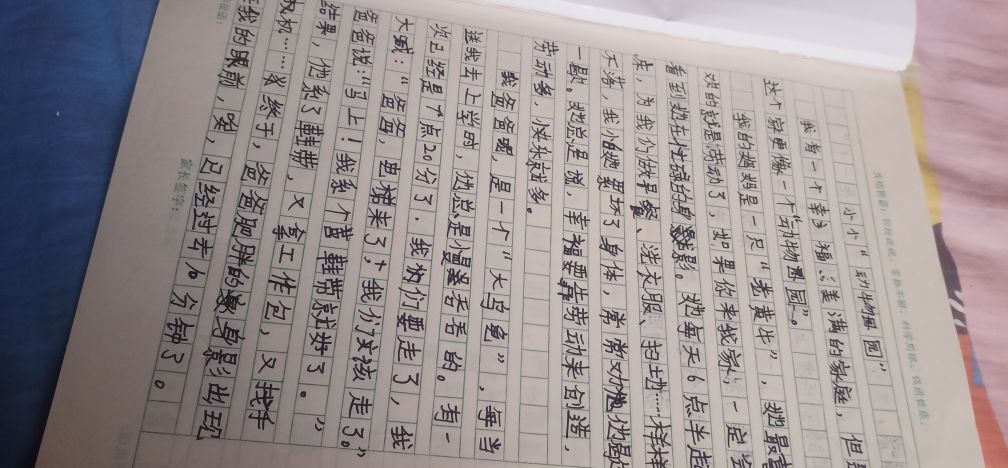 小小“动物园”
我有一个幸福美满的家庭，但
这个家更像一个“动物园”。
我的妈妈是一只“老黄牛”，她最喜
欢的就是劳动了，如果你来我家，一定会
看到她在忙碌的身影。她每天6点半起
床，为我们做早餐、洗衣服、扫地……样样
不落，我怕她累坏了身体，常常劝她
一歇。她总是说，幸福要靠劳动来创造，
劳动多，小快乐就多。
我爸爸呢，是一个“大白龟”，每当
送我去上学时，他总是慢吞吞的。有一
次已经是7点20分了，我们要走了，我
大喊：“爸爸，电梯来了，我们该走了。”
爸爸说：“马上！我系个鞋带就好了。”
结果，他系了鞋带，又拿工作包，又找手
机……终于，爸爸肥胖的身影出现
在我的眼前，唉，已经过去10分钟了。
家长签字：